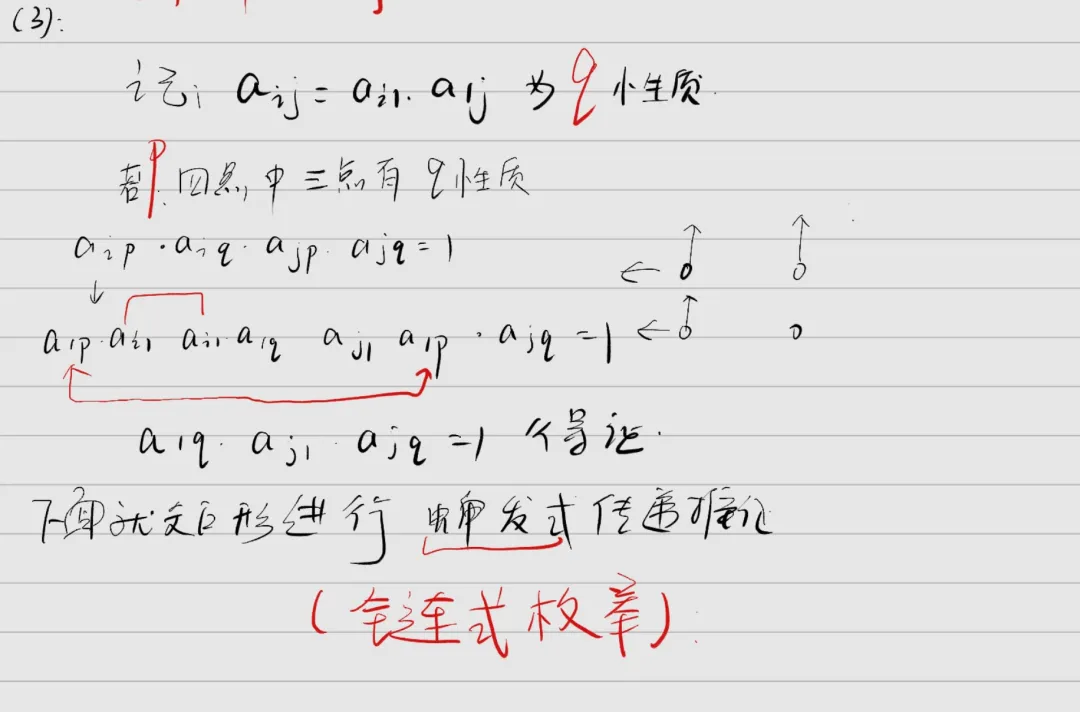 (3):
记: aij = ai1. a1j 为 q 性质.
若 P 四点中三点有 q 性质
aip · aiq · ajp · ajq = 1
↓
a1p · ai1 ai1 · a1q aj1 a1p · ajq = 1
a1q · aj1 · ajq = 1 得证.
下面就文形进行 发式传递推论
(链式枚举)